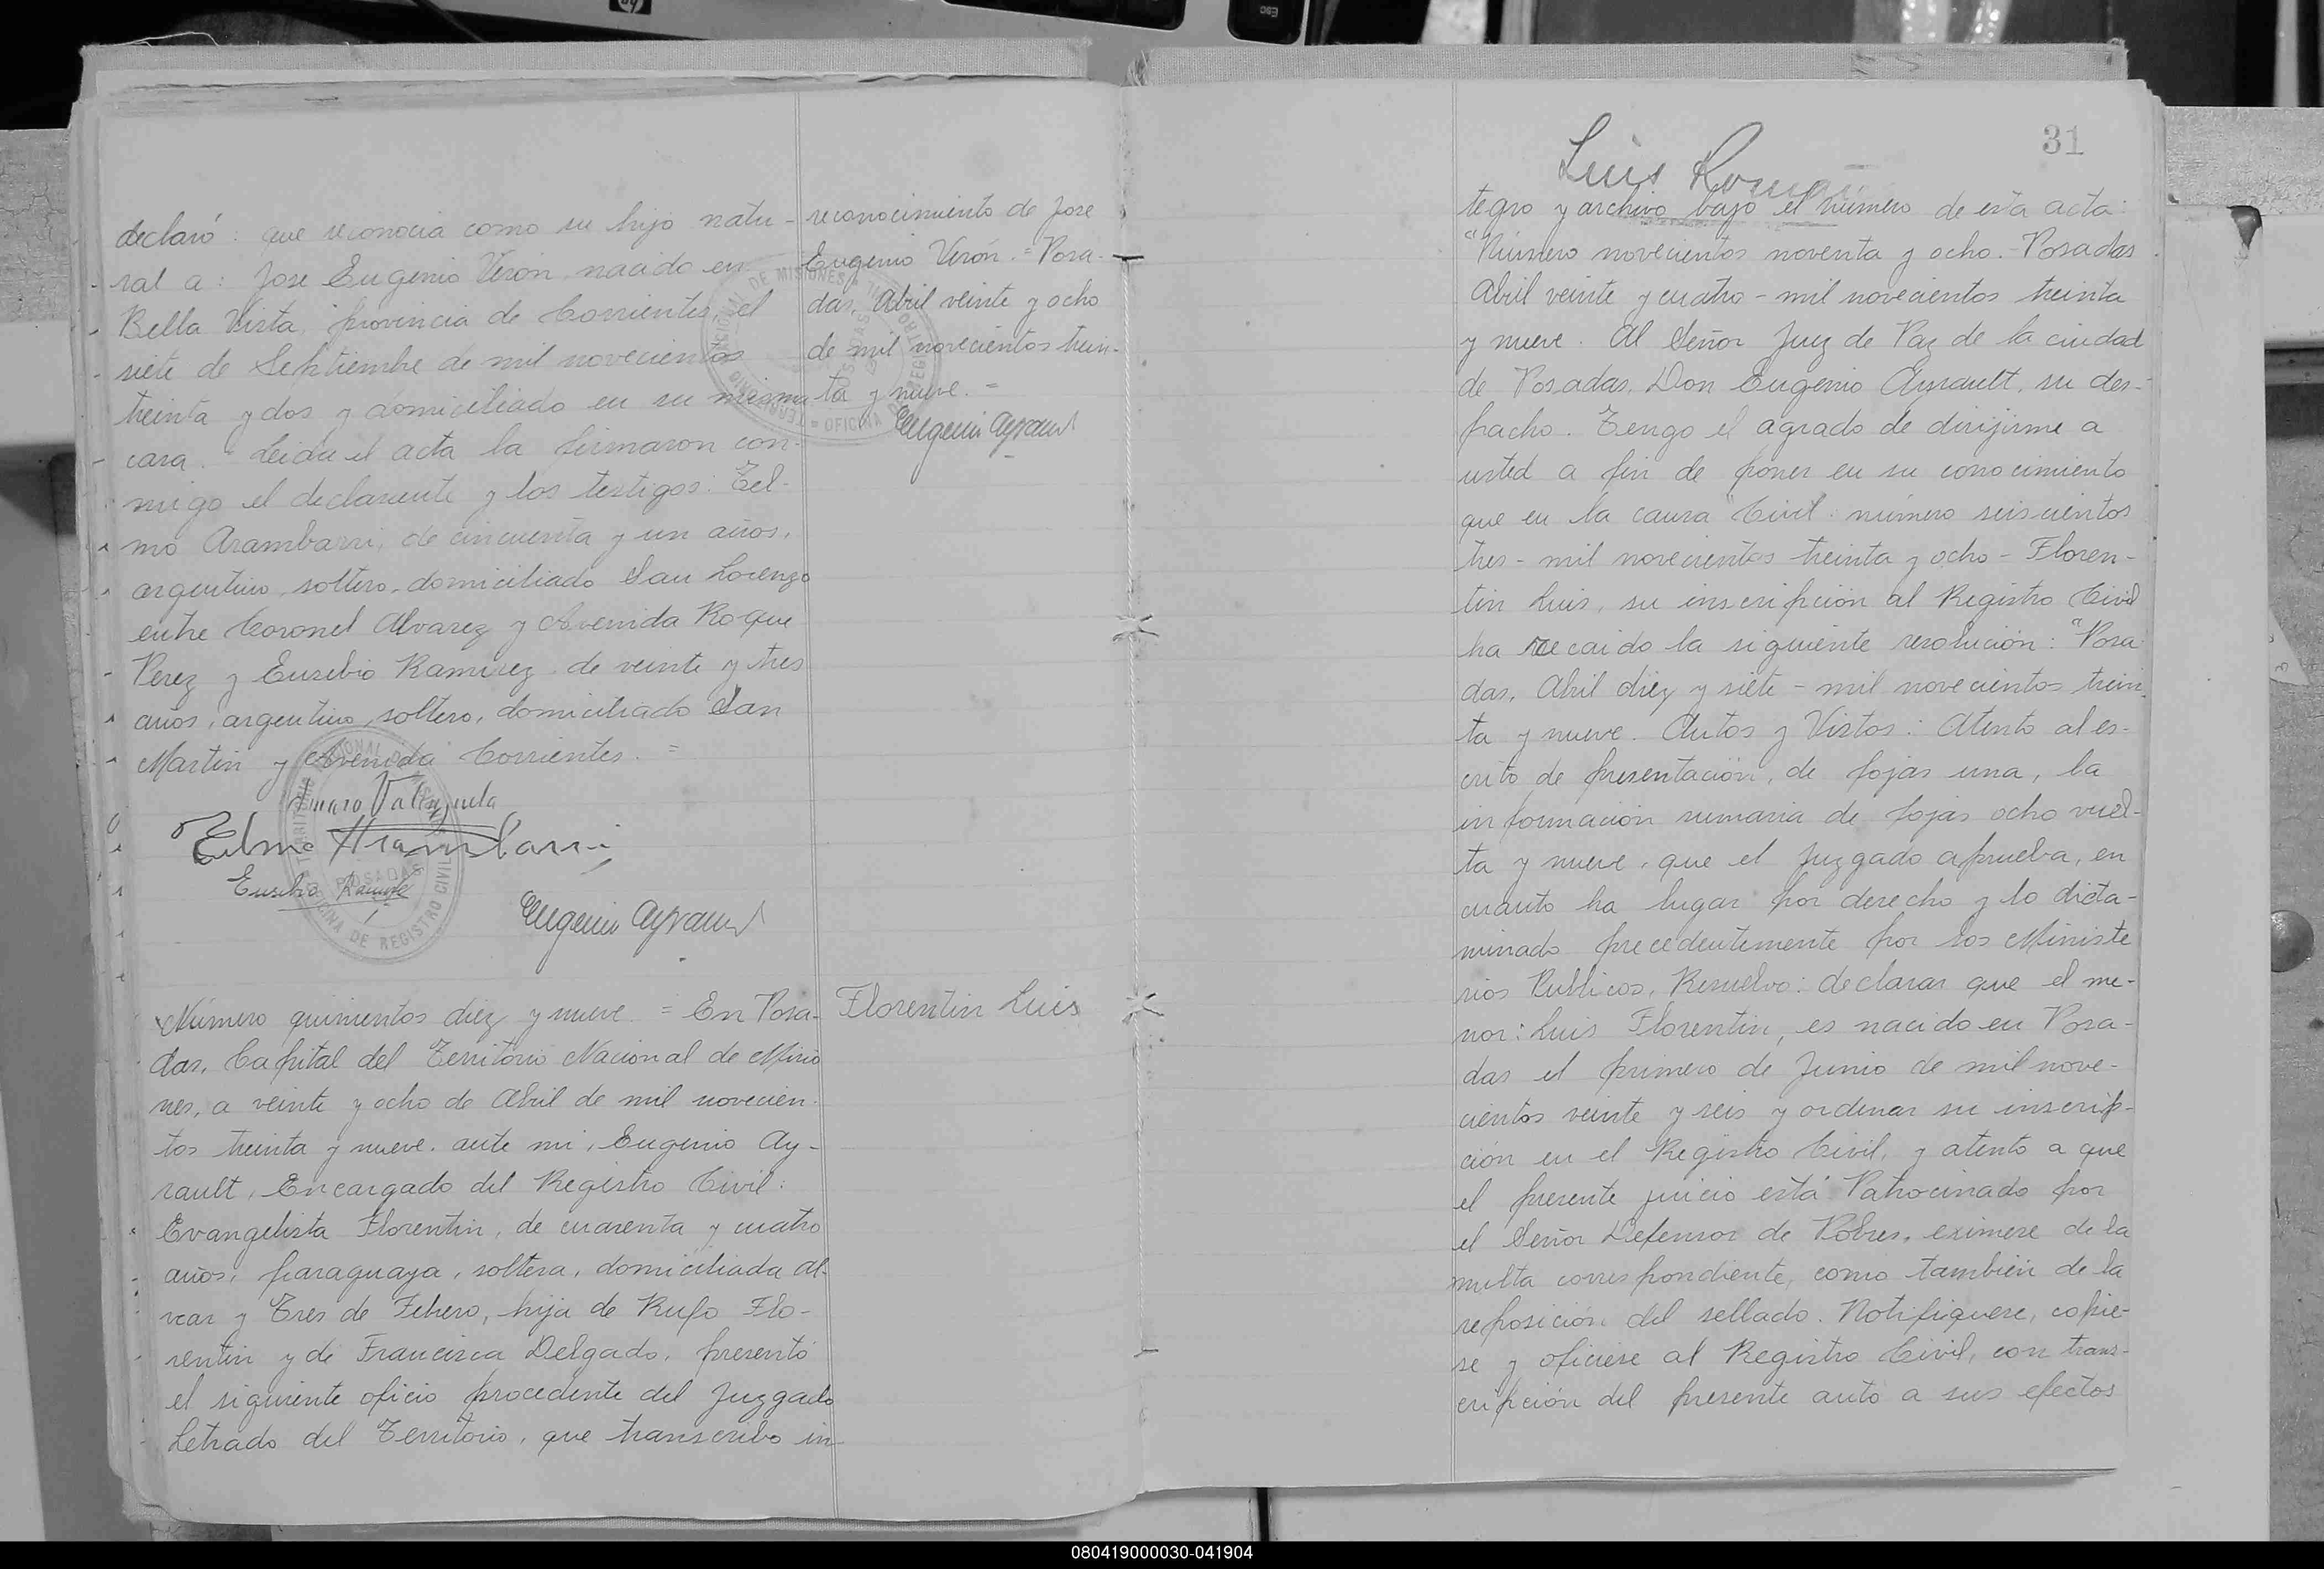 declaró: que reconocia como su hijo natu-
ral a: Jose Eugenio Verón, nacido en
Bella Vista, provincia de Corrientes, el
siete de Septiembre de mil novecientos
treinta y dos y domiciliado en su misma
casa. Leida el acta la firmaron con-
migo el declarante y los testigos: Tel-
mo Arambarri, de cincuenta y un años,
argentino, soltero, domiciliado San Lorenzo
entre Coronel Alvarez y Avenida Roque
Perez y Eusebio Ramirez de veinte y tres
años, argentino, soltero, domiciliado San
Martin y Avenida Corrientes. =
Amaro Valenzuela
Telmo Arambarri
Eusebio Ramirez
Eugenio Ayrault
reconocimiento de Jose
Eugenio Verón. = Posa-
das, Abril veinte y ocho
de mil novecientos trein-
ta y nueve. =
Eugenio Ayrault
TERRITORIO NACIONAL DE MISIONES
OFICINA DE REGISTRO CIVIL
POSADAS
Número quinientos diez y nueve = En Posa-
das, Capital del Territorio Nacional de Misio
nes, a veinte y ocho de Abril de mil novecien-
tos treinta y nueve. ante mi, Eugenio Ay-
rault, Encargado del Registro Civil:
Evangelista Florentin, de cuarenta y cuatro
años, paraguaya, soltera, domiciliada Al-
vear y Tres de Febrero, hija de Rufo Flo-
rentin y de Francisca Delgado, presentó
el siguiente oficio procedente del Juzgado
Letrado del Territorio, que transcribo in-
Florentin Luis
31
Luis Roman
tegro y archivo bajo el número de esta acta:
"Número novecientos noventa y ocho.- Posadas
Abril veinte y cuatro - mil novecientos treinta
y nueve. Al Señor Juez de Paz de la ciudad
de Posadas, Don Eugenio Ayrault, su des-
pacho. Tengo el agrado de dirijirme a
usted a fin de poner en su conocimiento
que en la causa "Civil número seiscientos
tres - mil novecientos treinta y ocho - Floren-
tin Luis, su inscripción al Registro Civil
ha recaido la siguiente resolución: "Posa-
das, Abril diez y siete - mil novecientos trein-
ta y nueve. Autos y Vistos: Atento al es-
crito de presentación, de fojas una, la
información sumaria de fojas ocho vuel-
ta y nueve, que el Juzgado aprueba, en
cuanto ha lugar por derecho y lo dicta-
minado precedentemente por los Ministe
rios Publicos, Resuelvo: declarar que el me-
nor: Luis Florentin, es nacido en Posa-
das el primero de Junio de mil nove-
cientos veinte y seis y ordenar su inscrip-
ción en el Registro Civil, y atento a que
el presente juicio está Patrocinado por
el Señor Defensor de Pobres, eximese de la
multa correspondiente, como también de la
reposición del sellado. Notifiquese, copie-
se y oficiese al Registro Civil, con trans-
cripción del presente auto a sus efectos
080419000030-041904